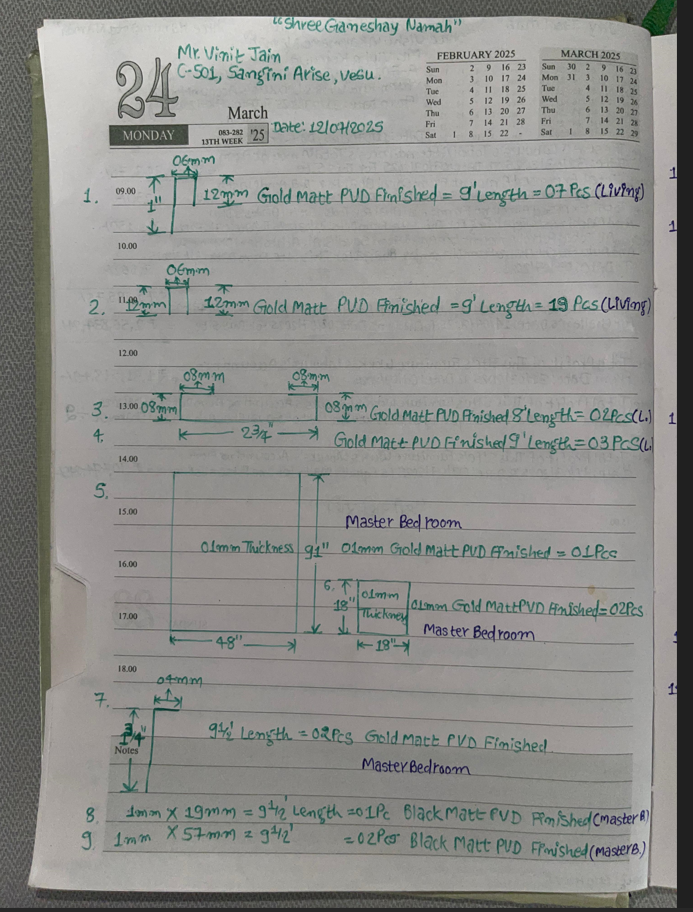 "Shree Ganeshay Namah"
Mr. Vinit Jain
C-501, Sangini Arise, vesu.
24
March
MONDAY
083-282
13TH WEEK
'25
Date: 12/07/2025
FEBRUARY 2025
Sun 2 9 16 23
Mon 3 10 17 24
Tue 4 11 18 25
Wed 5 12 19 26
Thu 6 13 20 27
Fri 7 14 21 28
Sat 1 8 15 22 -
MARCH 2025
Sun 30 2 9 16 23
Mon 31 3 10 17 24
Tue 4 11 18 25
Wed 5 12 19 26
Thu 6 13 20 27
Fri 7 14 21 28
Sat 1 8 15 22 29
06mm
1. 09.00 1" 12mm Gold Matt PVD Finished = 9' Length = 07 Pcs (Living)
10.00
06mm
2. 11.00 12mm 12mm Gold Matt PVD Finished = 9' Length = 19 Pcs (Living)
12.00
08mm 08mm
3. 13.00 08mm 08mm Gold Matt PVD Finished 8' Length = 02Pcs(L.)
4. 2 3/4" Gold Matt PVD Finished 9' Length = 03 Pcs(L
14.00
5.
15.00
Master Bedroom
01mm Thickness 91" 01mm Gold Matt PVD Finished = 01Pcc
16.00
6. 18" 01mm Thickness 01mm Gold Matt PVD Finished = 02Pcs
17.00
Master Bedroom
48" 18"
18.00
04mm
7.
3/4" 9 1/2' Length = 02Pcs Gold Matt PVD Finished
Notes
Master Bedroom
8. 1mm X 19mm = 9 1/2' Length = 01Pc Black Matt PVD Finished (Master B)
9. 1mm X 57mm = 9 1/2' = 02Pcs Black Matt PVD Finished (Master B.)